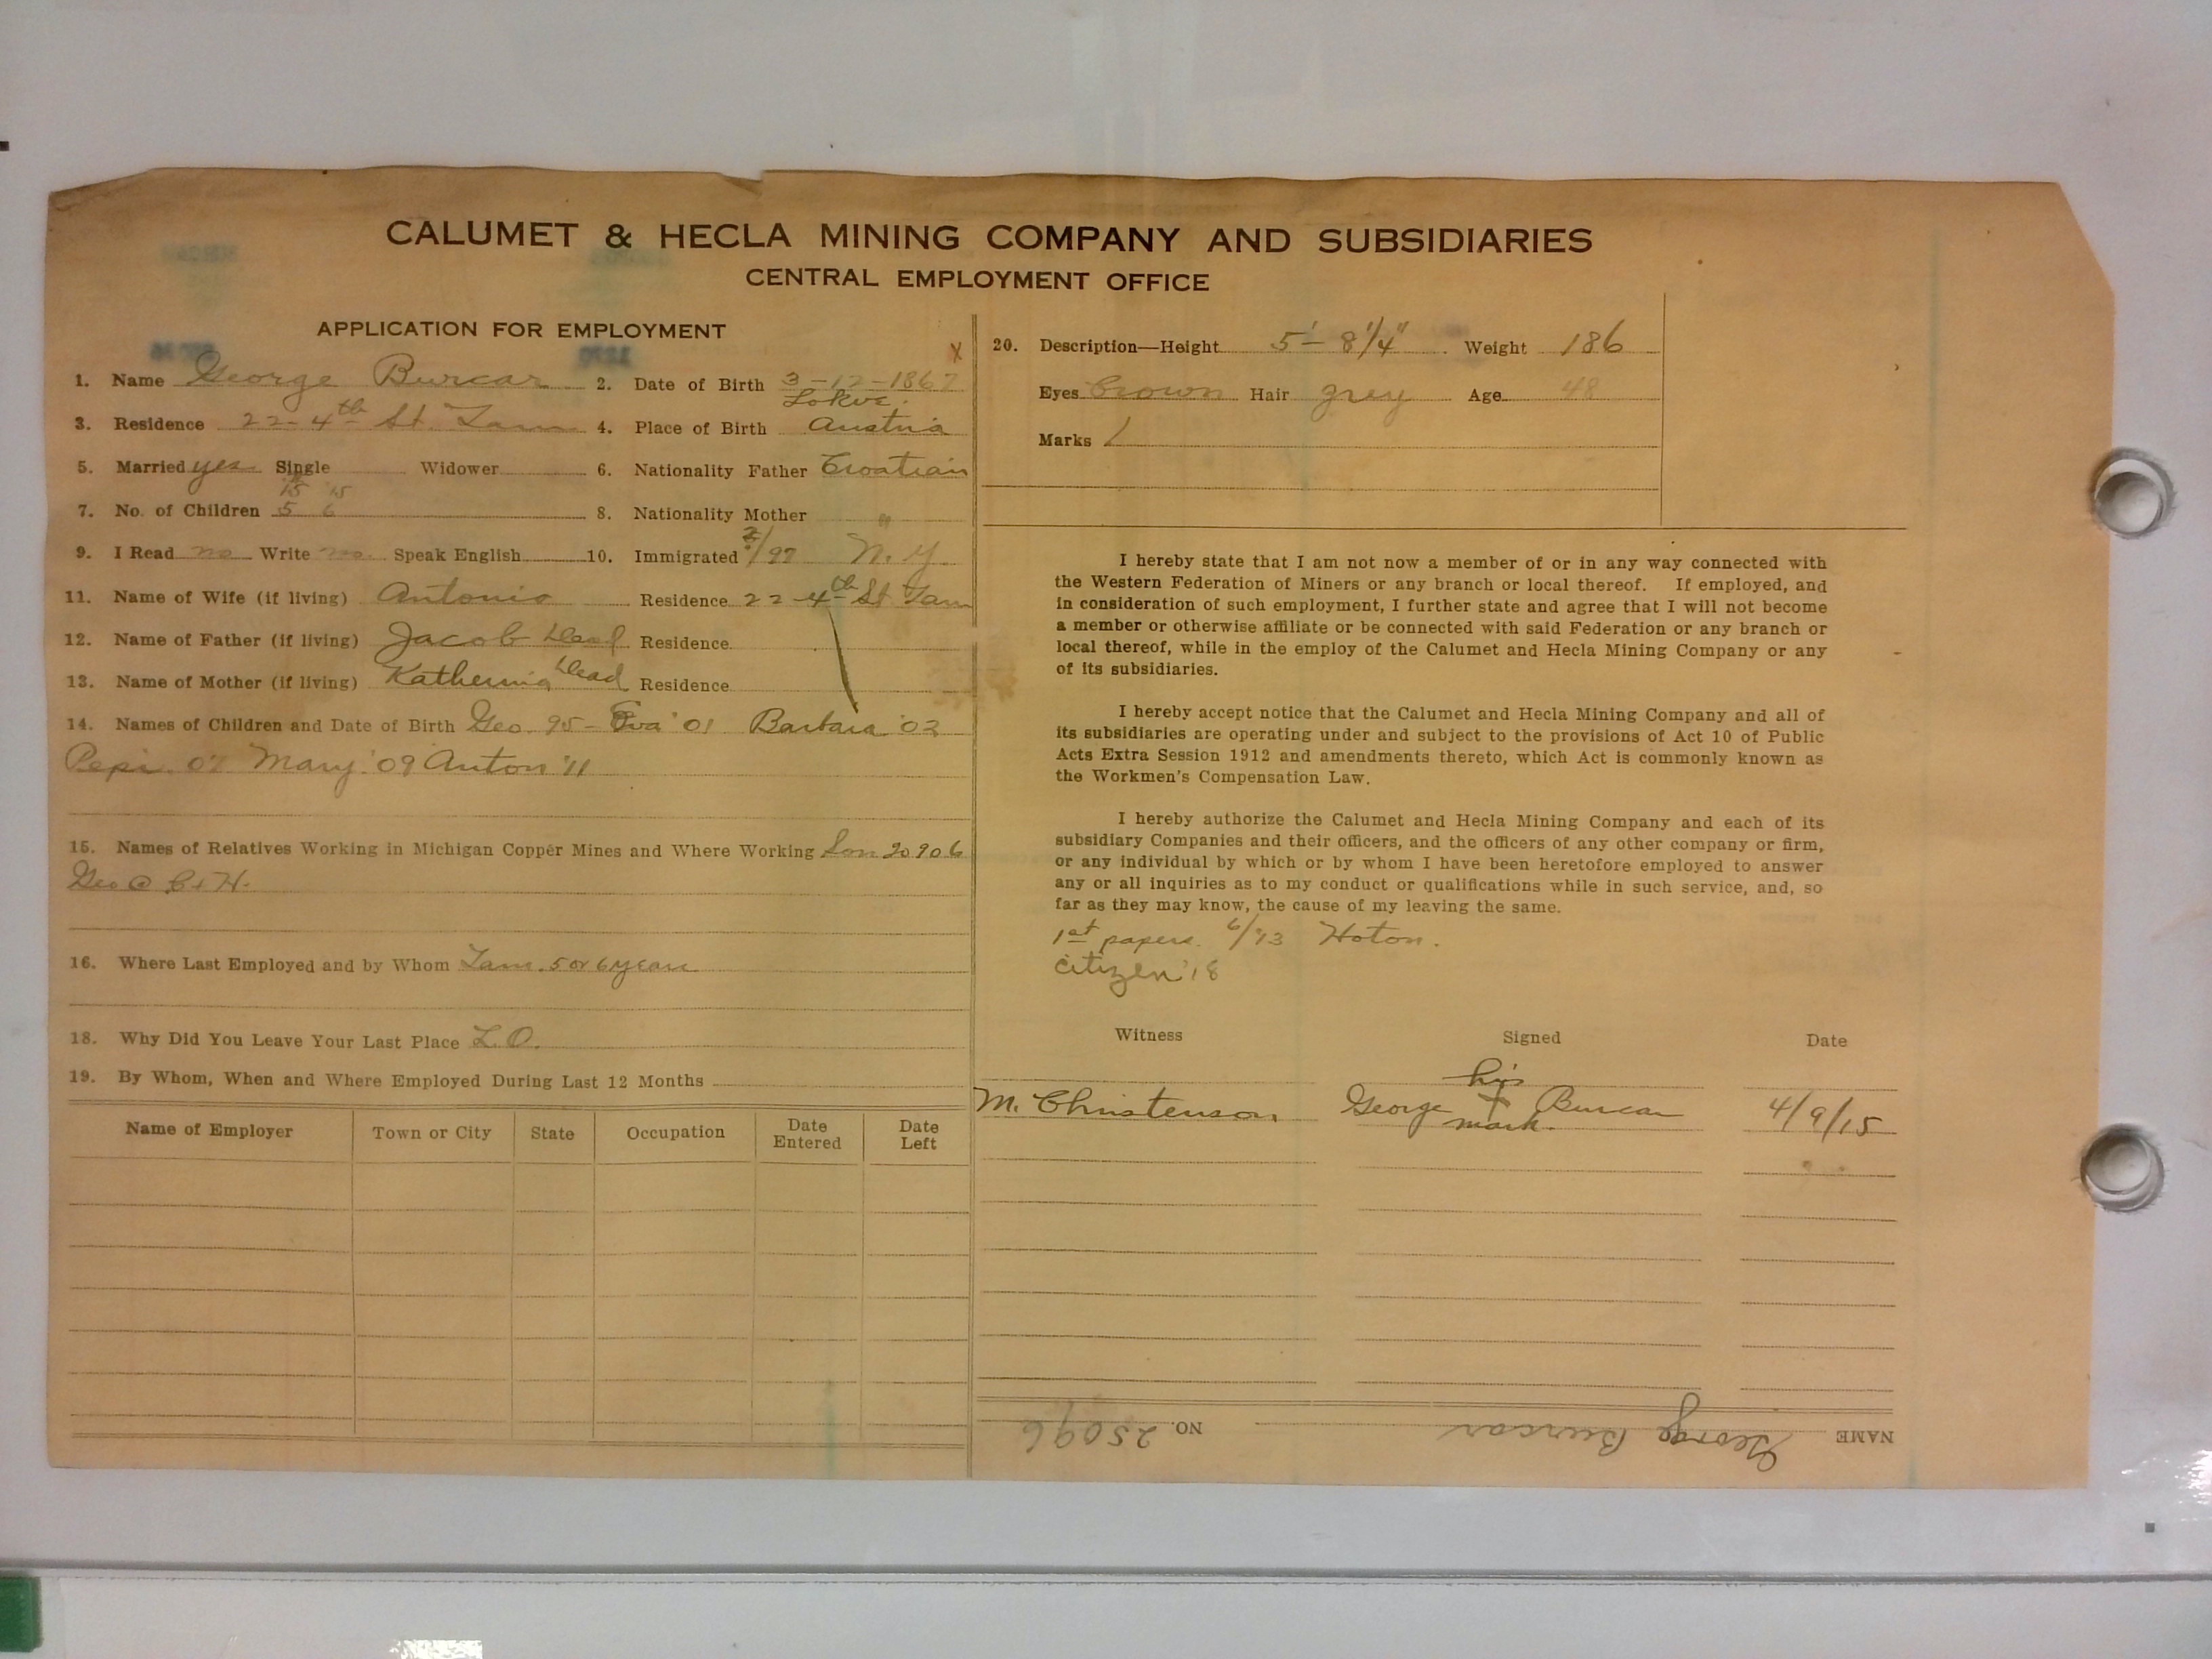 CALUMET & HECLA MINING COMPANY AND SUBSIDIARIES
CENTRAL EMPLOYMENT OFFICE
APPLICATION FOR EMPLOYMENT
X
1. Name George Burcar 2. Date of Birth 3-12-1867
Lokve.
3. Residence 22-4th St. Tam 4. Place of Birth Austria
5. Married yes Single Widower 6. Nationality Father Croatian
'15 '15
7. No. of Children 5 6 8. Nationality Mother "
9. I Read no Write no Speak English 10. Immigrated /97 N.Y
11. Name of Wife (if living) Antonia Residence 22-4th St Tam
12. Name of Father (if living) Jacob Dead Residence
13. Name of Mother (if living) Katherina Dead Residence
14. Names of Children and Date of Birth Geo. 95- Eva '01 Barbara '02
Pepi 07 Mary '09 Anton '11
15. Names of Relatives Working in Michigan Copper Mines and Where Working Son 20906
Geo @ C+H.
16. Where Last Employed and by Whom Tam. 5 or 6 years
18. Why Did You Leave Your Last Place L.O.
19. By Whom, When and Where Employed During Last 12 Months
Name of Employer Town or City State Occupation Date Entered Date Left
20. Description—Height 5'-8 1/4" Weight 186
Eyes brown Hair grey Age 48
Marks /
I hereby state that I am not now a member of or in any way connected with
the Western Federation of Miners or any branch or local thereof. If employed, and
in consideration of such employment, I further state and agree that I will not become
a member or otherwise affiliate or be connected with said Federation or any branch or
local thereof, while in the employ of the Calumet and Hecla Mining Company or any
of its subsidiaries.
I hereby accept notice that the Calumet and Hecla Mining Company and all of
its subsidiaries are operating under and subject to the provisions of Act 10 of Public
Acts Extra Session 1912 and amendments thereto, which Act is commonly known as
the Workmen's Compensation Law.
I hereby authorize the Calumet and Hecla Mining Company and each of its
subsidiary Companies and their officers, and the officers of any other company or firm,
or any individual by which or by whom I have been heretofore employed to answer
any or all inquiries as to my conduct or qualifications while in such service, and, so
far as they may know, the cause of my leaving the same.
1st papers. 6/13 Hoton.
citizen '18
Witness Signed Date
his
M. Christenson, George + Burcar 4/9/15
mark.
NAME George Burcar NO. 25096